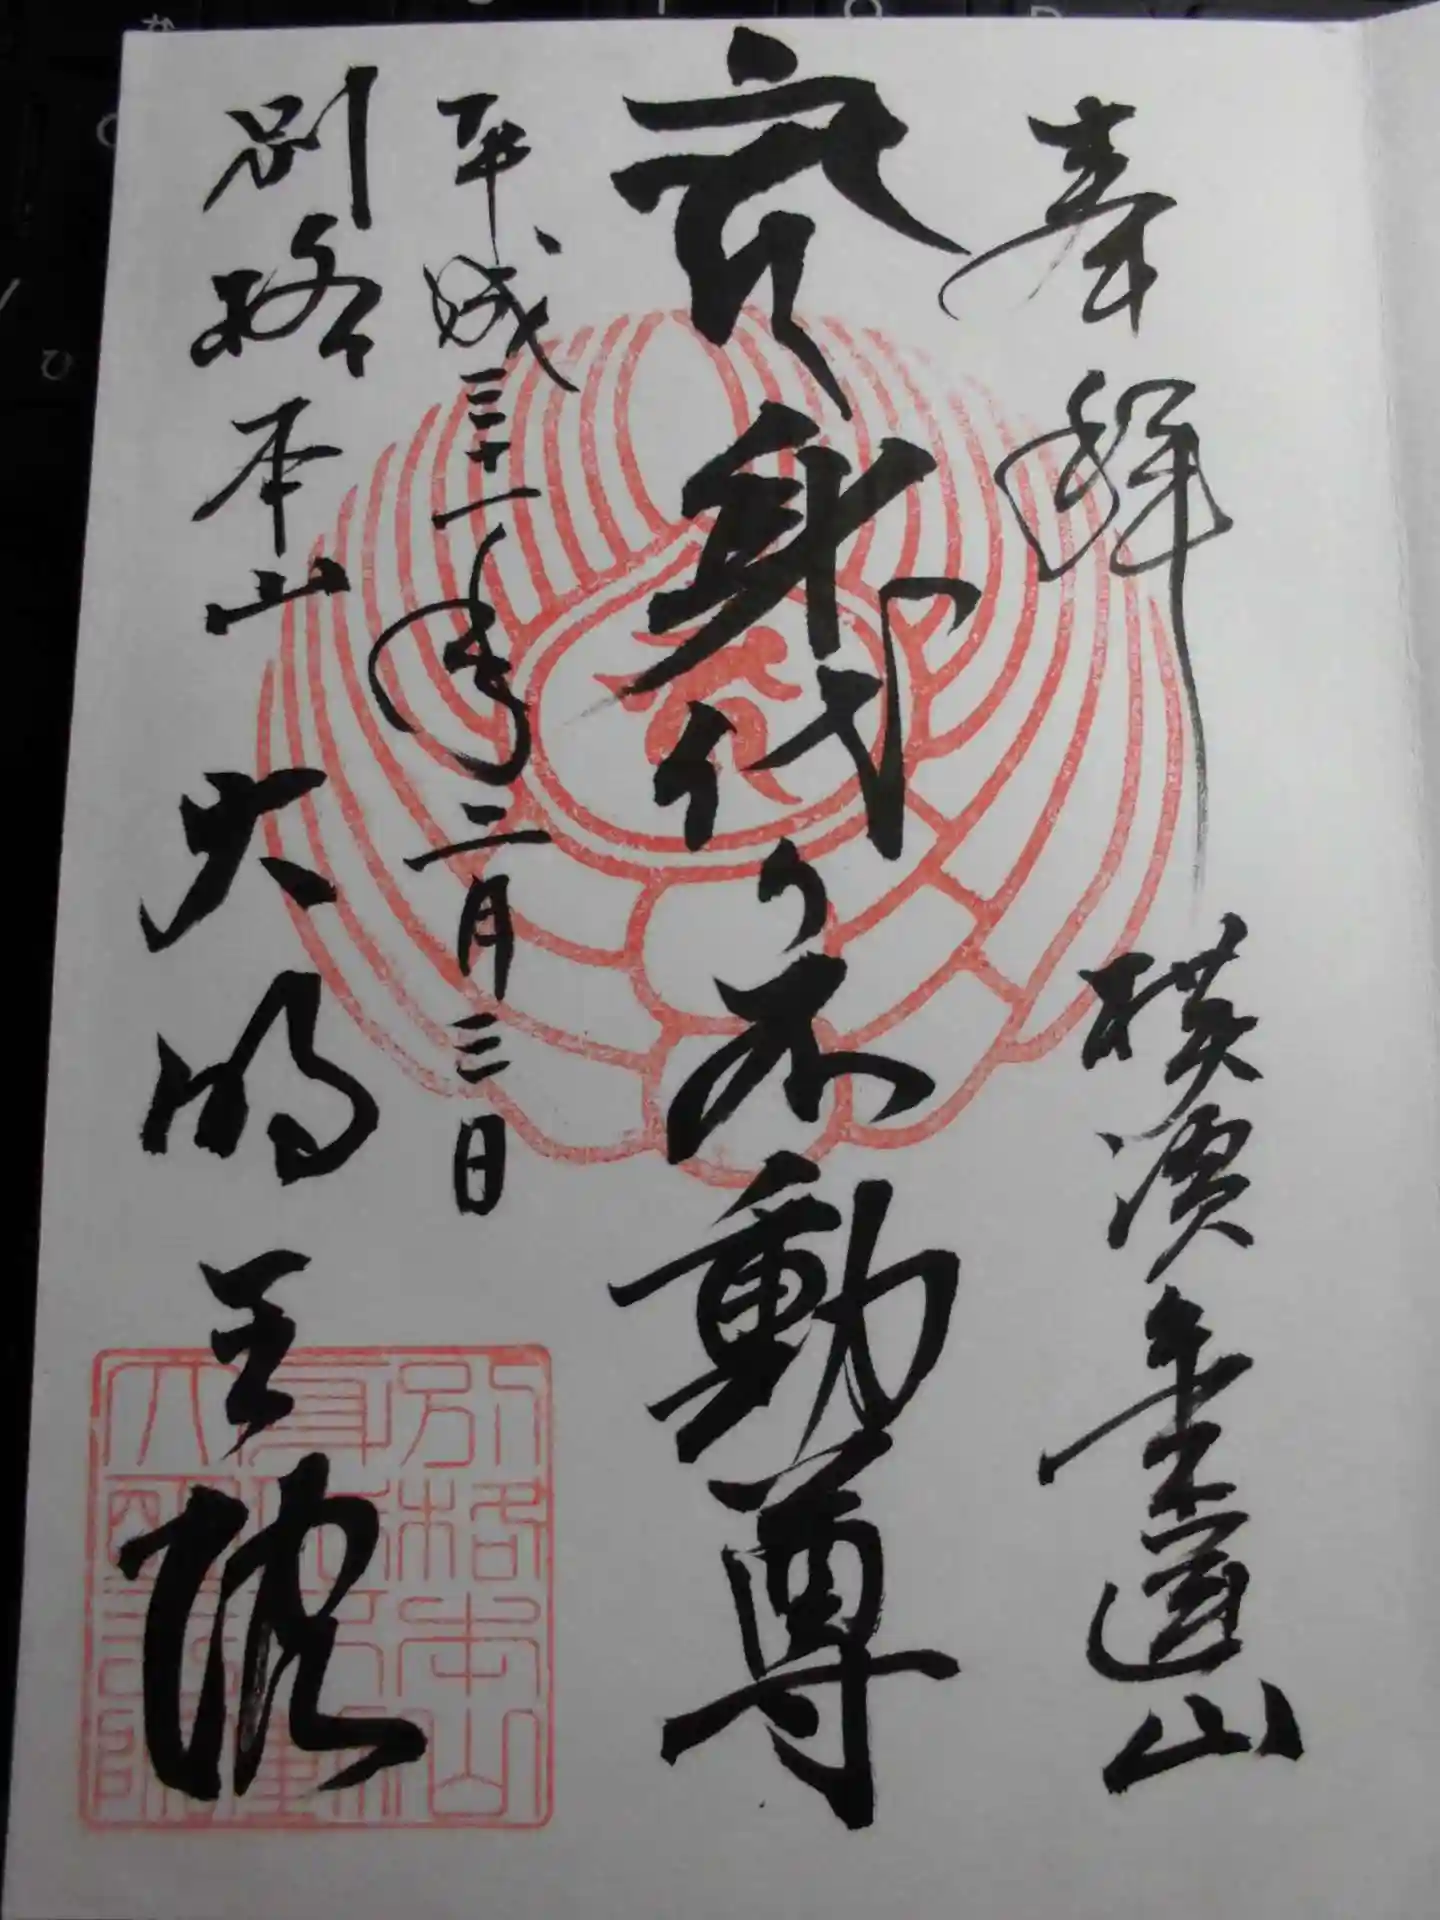 奉拝 横濱
身代り不動尊
平成三十一年二月三日
別格本山 大明王院
別格本山
大明王院